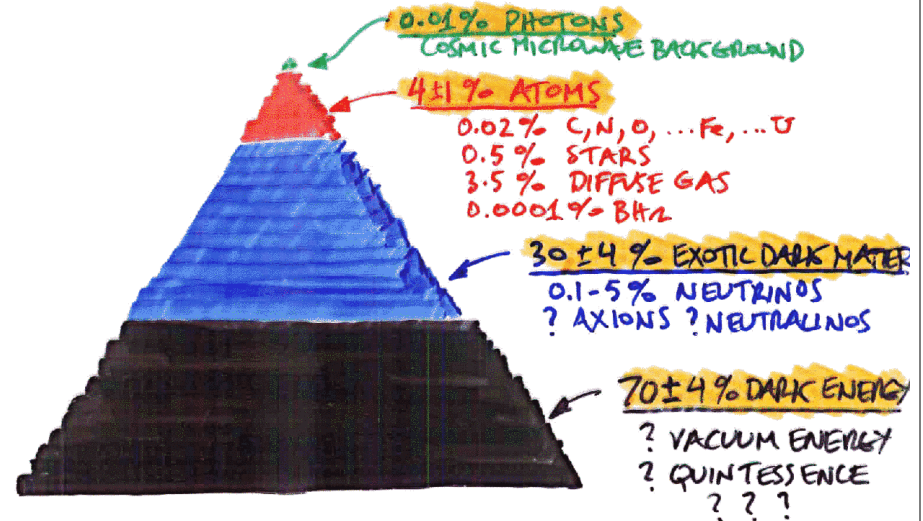 0.01% PHOTONS
COSMIC MICROWAVE BACKGROUND
4±1% ATOMS
0.02% C, N, O, ...Fe, ...U
0.5% STARS
3.5% DIFFUSE GAS
0.0001% BH
30±4% EXOTIC DARK MATTER
0.1-5% NEUTRINOS
? AXIONS ? NEUTRALINOS
70±4% DARK ENERGY
? VACUUM ENERGY
? QUINTESSENCE
? ? ?